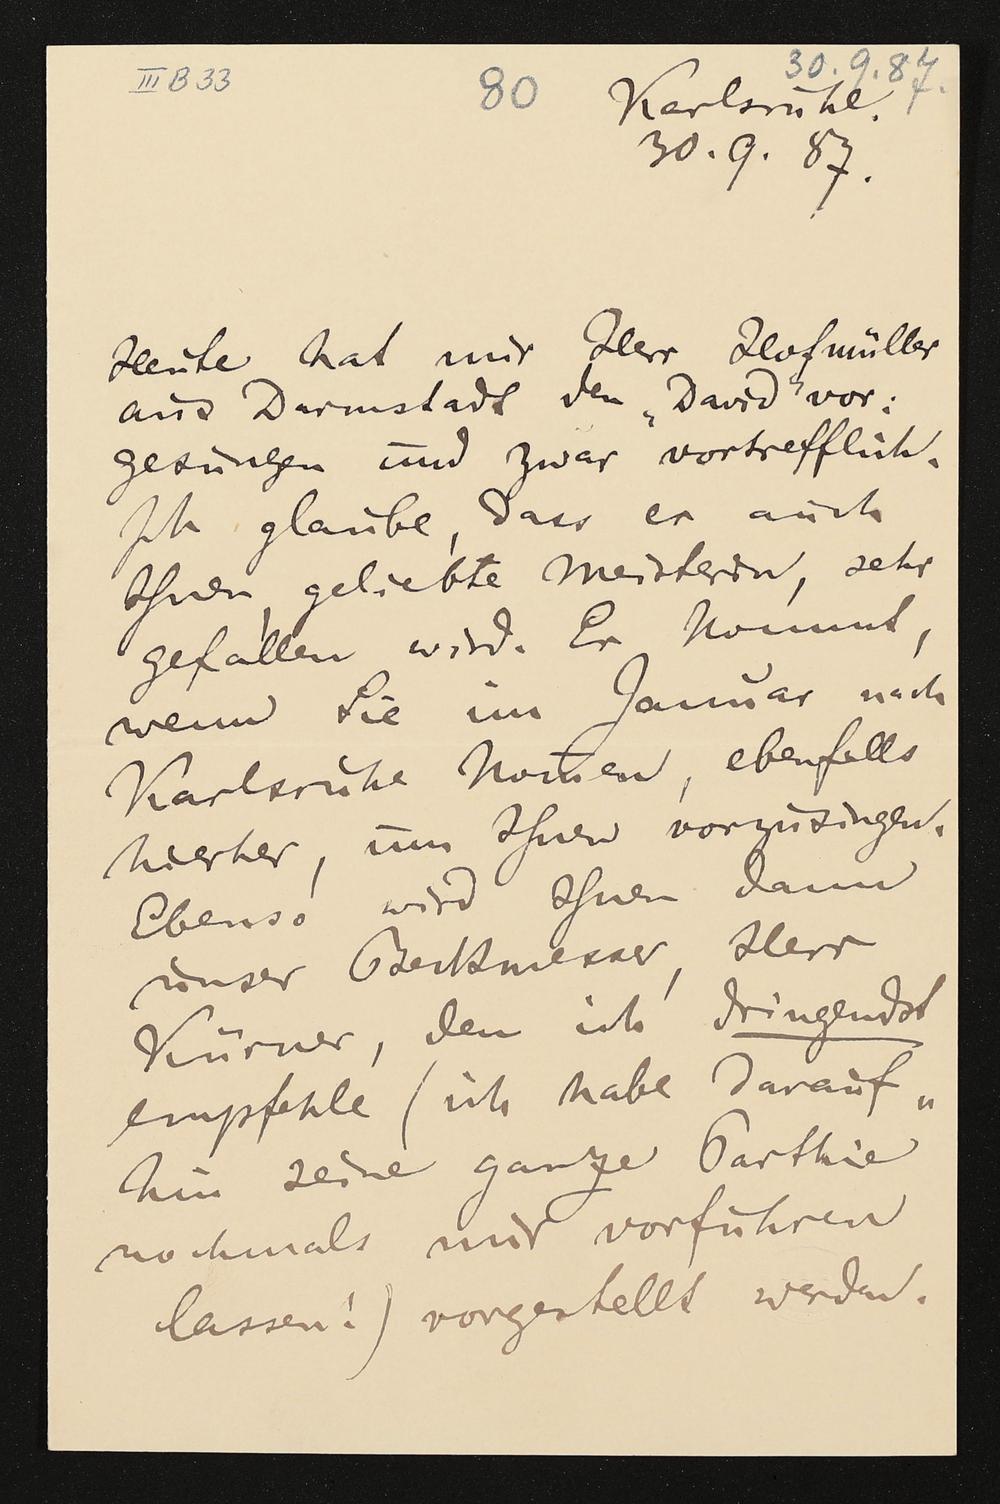 III B 33
80
30.9.87.
Karlsruhe.
30.9.87.
Heute hat mir Herr Hofmüller
aus Darmstadt den „David“ vor:
gesungen und zwar vortrefflich.
Ich glaube, dass er auch
Ihnen, geliebte Meisterin, sehr
gefallen wird. Er kommt,
wenn Sie im Januar nach
Karlsruhe kom̅en, ebenfalls
hierher, um Ihnen vorzusingen.
Ebenso wird Ihnen dann
unser Beckmesser, Herr
Kürner, den ich dringendst
empfehle (ich habe darauf„
hin seine ganze Parthie
nochmals mir vorführen
lassen!) vorgestellt werden.